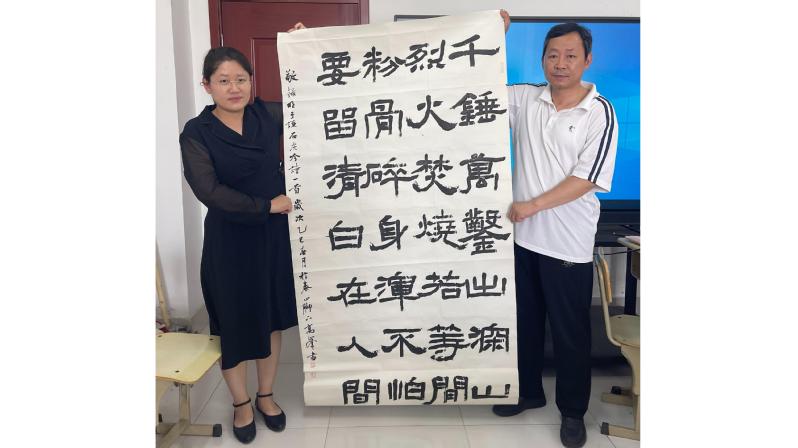 千錘萬鑿出深山
烈火焚燒若等閒
粉骨碎身渾不怕
要留清白在人間
敬錄明于謙石灰吟詩一首歲次乙巳